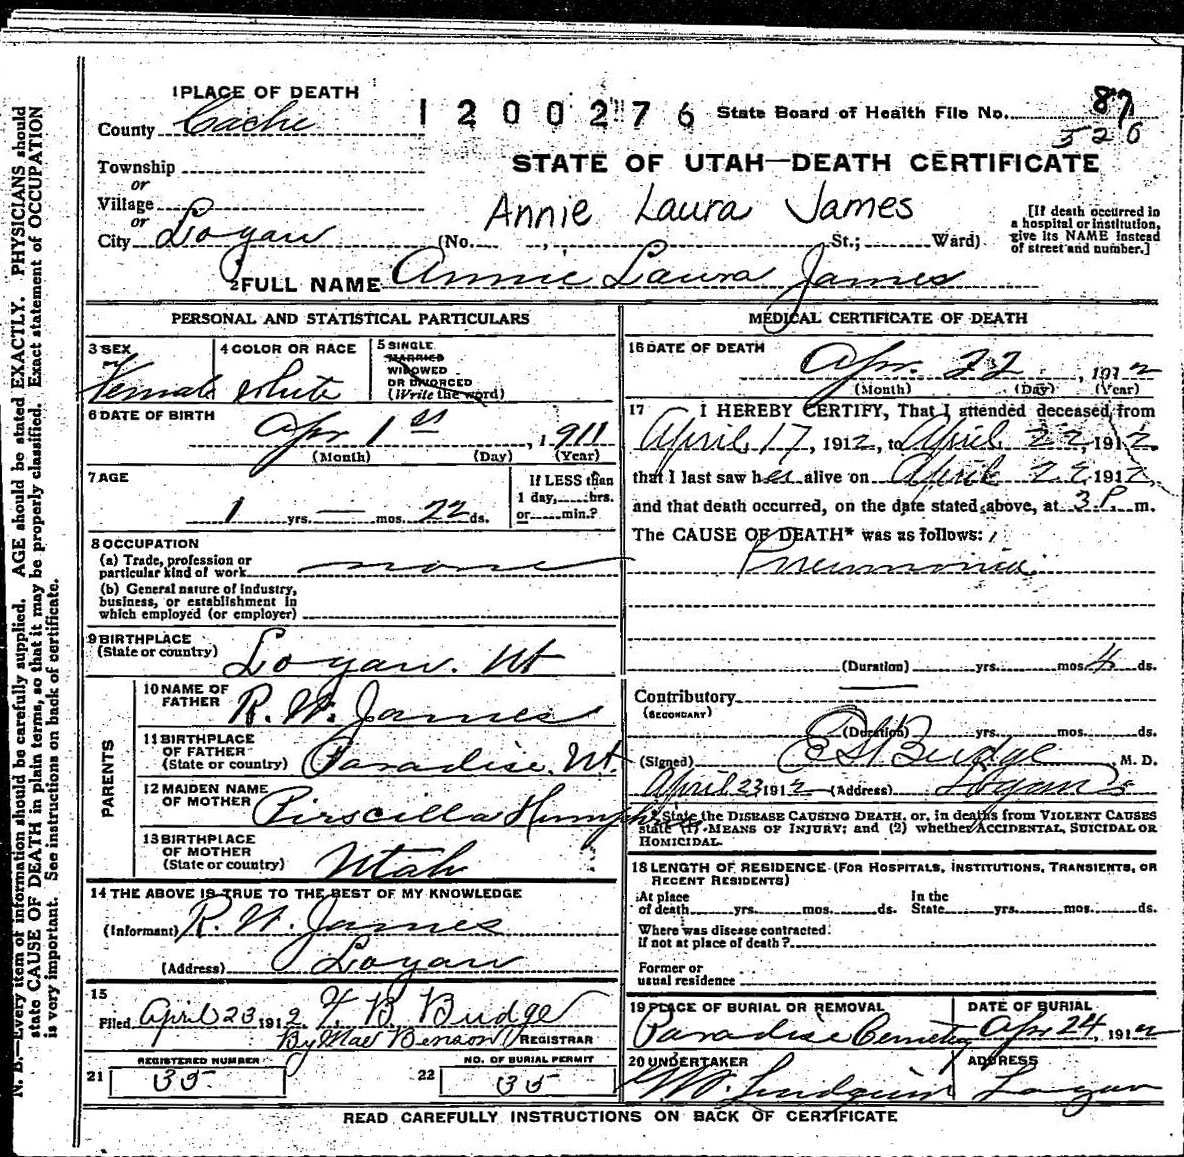 1 PLACE OF DEATH
County Cache
1200276 State Board of Health File No. 87
526
Township
or
Village
or
City Logan
STATE OF UTAH—DEATH CERTIFICATE
Annie Laura James
(No. , St.; Ward)
[If death occurred in a hospital or institution, give its NAME instead of street and number.]
2 FULL NAME Annie Laura James
PERSONAL AND STATISTICAL PARTICULARS
3 SEX
Female
4 COLOR OR RACE
White
5 SINGLE
MARRIED
WIDOWED
OR DIVORCED
(Write the word)
6 DATE OF BIRTH
Apr 1st, 1911
(Month) (Day) (Year)
7 AGE
1 yrs. — mos. 22 ds.
If LESS than
1 day, hrs.
or min.?
8 OCCUPATION
(a) Trade, profession or
particular kind of work none
(b) General nature of industry,
business, or establishment in
which employed (or employer)
9 BIRTHPLACE
(State or country) Logan. Ut
PARENTS
10 NAME OF
FATHER R. W. James
11 BIRTHPLACE
OF FATHER
(State or country) Paradise, Ut.
12 MAIDEN NAME
OF MOTHER Pirscilla Humphr
13 BIRTHPLACE
OF MOTHER
(State or country) Utah
14 THE ABOVE IS TRUE TO THE BEST OF MY KNOWLEDGE
(Informant) R. W. James
(Address) Logan
15
Filed April 23 1912. F. B. Budge
By Mae Benson REGISTRAR
REGISTERED NUMBER
21 35
NO. OF BURIAL PERMIT
22 35
MEDICAL CERTIFICATE OF DEATH
16 DATE OF DEATH
Apr. 22, 1912
(Month) (Day) (Year)
17 I HEREBY CERTIFY, That I attended deceased from
April 17, 1912, to April 22, 1912.
that I last saw her alive on April 22 1912,
and that death occurred, on the date stated above, at 3 P. m.
The CAUSE OF DEATH* was as follows:
Pneumonia
(Duration) yrs. mos. 4 ds.
Contributory
(SECONDARY)
(Duration) yrs. mos. ds.
(Signed) Budge M. D.
April 23 1912 (Address) Logan
*State the DISEASE CAUSING DEATH, or, in deaths from VIOLENT CAUSES
state (1) MEANS OF INJURY; and (2) whether ACCIDENTAL, SUICIDAL OR
HOMICIDAL.
18 LENGTH OF RESIDENCE (FOR HOSPITALS, INSTITUTIONS, TRANSIENTS, OR
RECENT RESIDENTS)
At place
of death yrs. mos. ds.
In the
State yrs. mos. ds.
Where was disease contracted
if not at place of death?
Former or
usual residence
19 PLACE OF BURIAL OR REMOVAL
Paradise Cemetery
DATE OF BURIAL
Apr 24, 1912
20 UNDERTAKER
ADDRESS
Logan
READ CAREFULLY INSTRUCTIONS ON BACK OF CERTIFICATE
N. B.—Every item of information should be carefully supplied. AGE should be stated EXACTLY. PHYSICIANS should
state CAUSE OF DEATH in plain terms, so that it may be properly classified. Exact statement of OCCUPATION
is very important. See instructions on back of certificate.